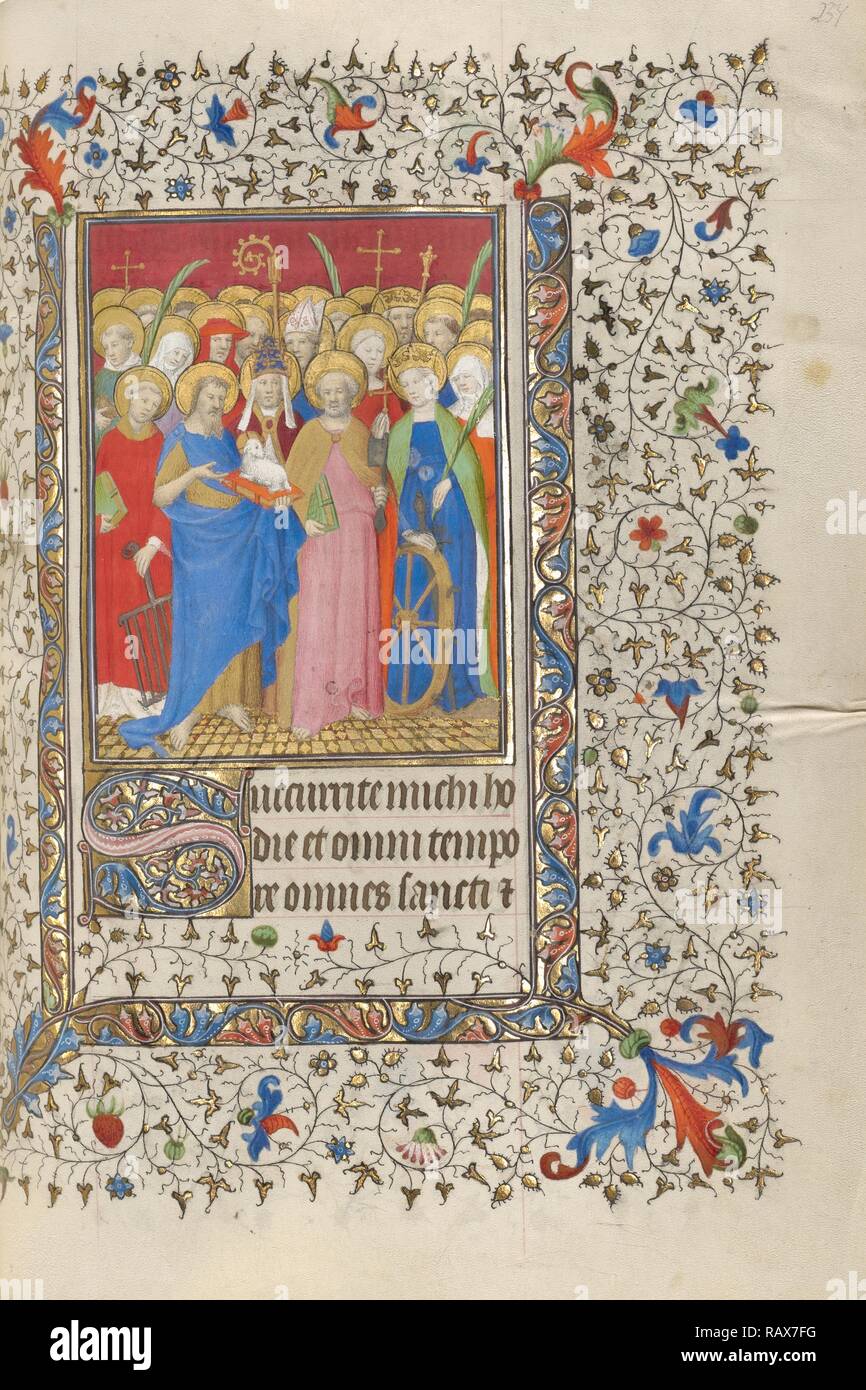 234
Succurrite michi ho
die et omni tempo
re omnes sancti ⁊
alamy
Image ID: RAX7FG
www.alamy.com